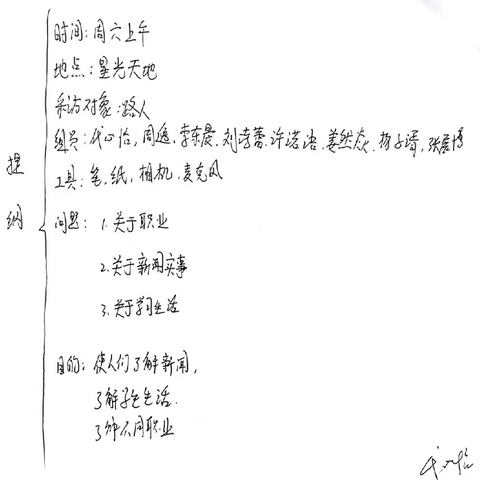 时间：周六上午
地点：星光天地
采访对象：路人
组员：代心怡，周逸，李东晨，刘诗蕾，许诺涵，姜然，杨子谞，张宸博
提纲
工具：笔，纸，相机，麦克风
问题：1.关于职业
2.关于新闻实事
3.关于学习生活
目的：使人们了解新闻，
了解学生生活.
了解不同职业
代心怡